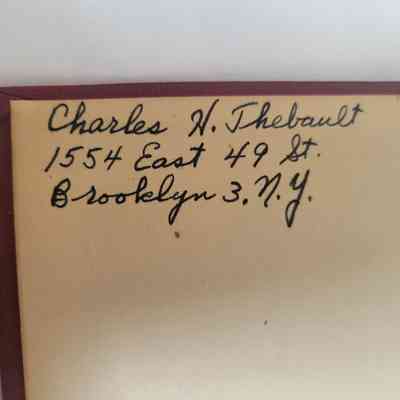 Charles H. Thebault
1554 East 49 St.
Brooklyn 3. N.Y.